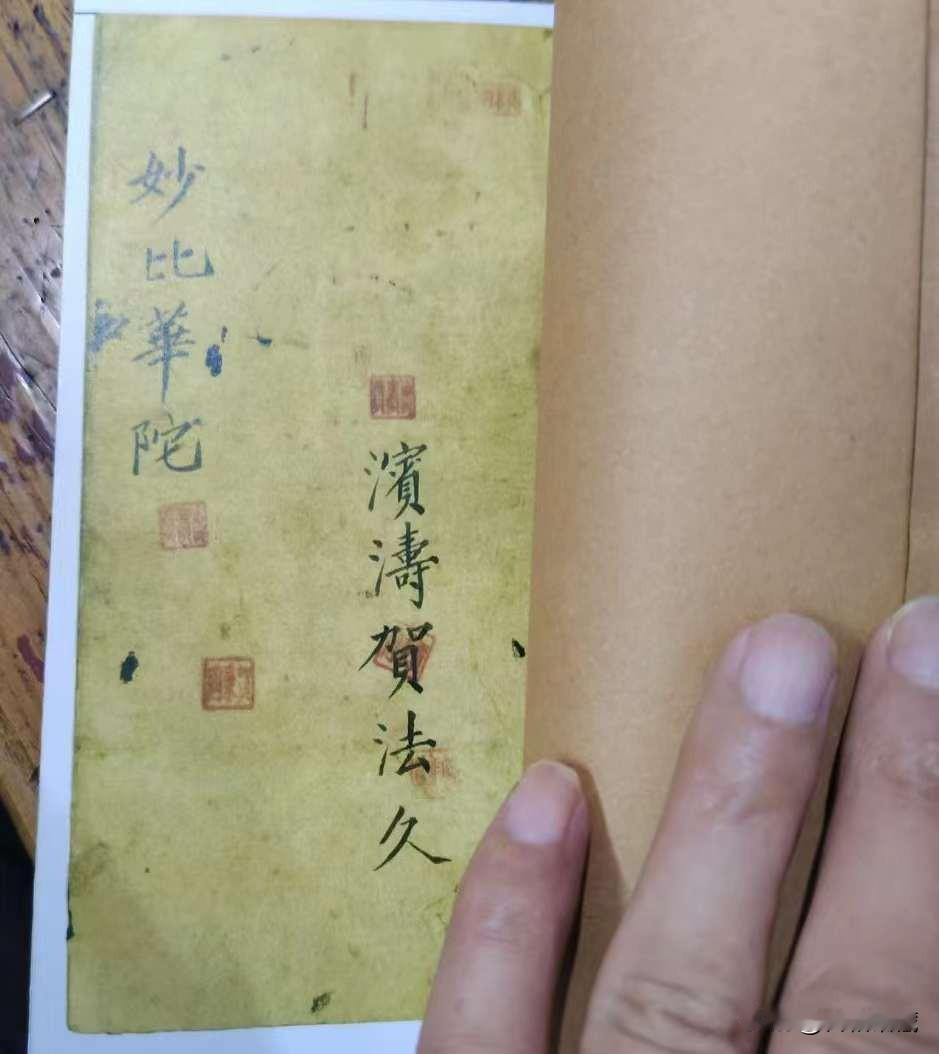 濱濤賀法久
妙比華陀